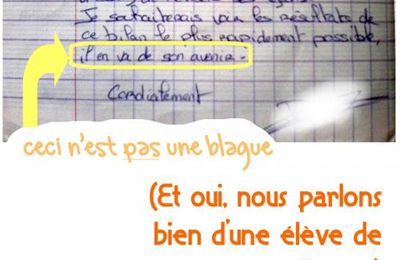 Je souhaiterais voir les résultats de
ce bilan le plus rapidement possible,
il en va de son avenir.
Cordialement
ceci n'est pas une blague
(Et oui, nous parlons
bien d'une élève de